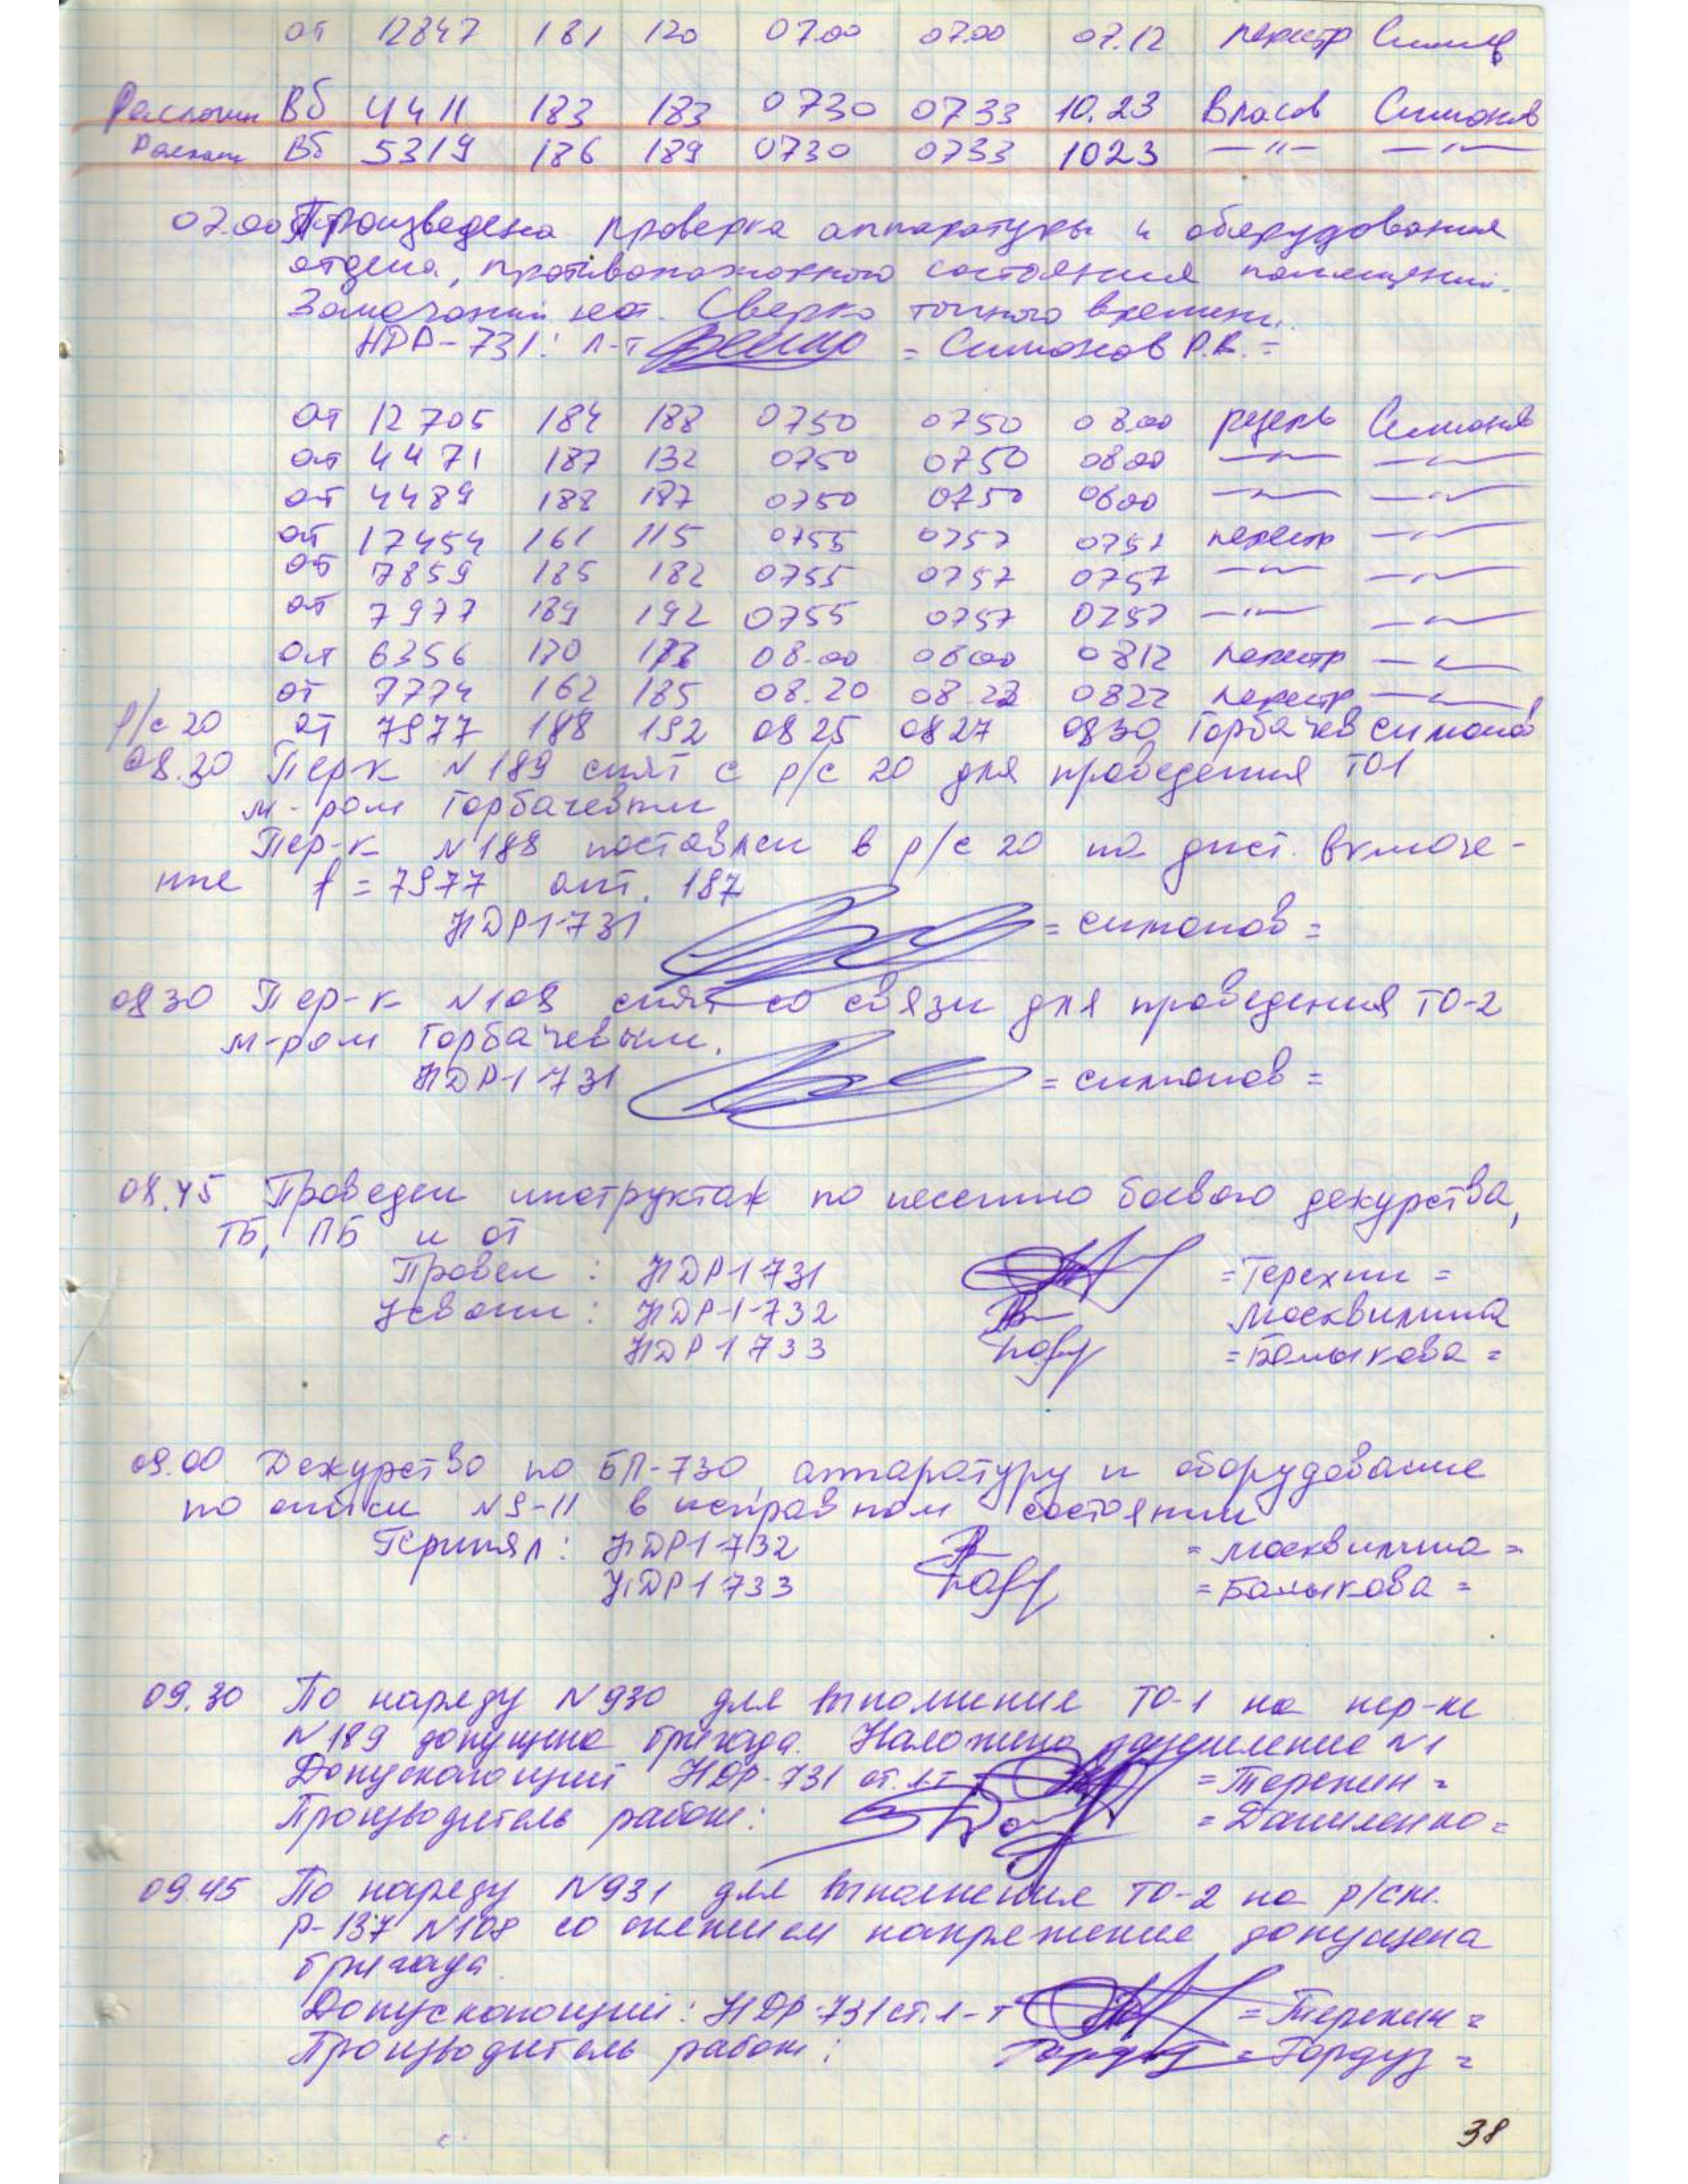 от 12847 181 120 07.00 07.00 07.12 перестр
Вб 4411 183 183 0730 0733 10.23 Власов Симонов
Вб 5319 186 189 0730 0733 1023 —"— —"—
07.00 Произведена проверка аппаратуры и оборудования
отдела, противопожарного состояния помещений.
Замечаний нет. Сверка точного времени.
НДР-731: л-т = Симонов Р.В. =
от 12705 184 188 0750 0750 08.00 резерв Симонов
от 4471 187 132 0750 0750 0800 —"— —"—
от 4489 188 187 0750 0750 0800 —"— —"—
от 17454 161 115 0755 0757 0757 перестр —"—
от 7859 185 182 0755 0757 0757 —"— —"—
от 7977 189 192 0755 0757 0757 —"— —"—
от 6356 170 08.00 0800 0812 перестр —"—
от 7774 162 185 08.20 08.22 0822 перестр —"—
р/с 20 от 7977 188 192 0825 0827 0830 Горбачев Симонов
08.30 Пер-к N189 снят с р/с 20 для проведения ТО1
м-ром Горбачевым
Пер-к N188 поставлен в р/с 20 на дист. включе-
ние f = 7977 ант. 187
НДР1-731 = Симонов =
0830 Пер-к N108 снят со связи для проведения ТО-2
м-ром Горбачевым.
НДР1-731 = Симонов =
08.45 Проведен инструктаж по несению боевого дежурства,
ТБ, ПБ и от
Провел: НДР1-731 = Терехин =
Усвоили: НДР-1-732 Москвитина
НДР1 733 = Балыкова =
09.00 Дежурство по БП-730, аппаратуру и оборудование
по описи N9-11 в исправном состоянии
Принял: НДР1-732 = Москвитина =
НДР1 733 = Балыкова =
09.30 По наряду N930 для выполнения ТО-1 на пер-ке
N189 допущена бригада. Наложено заземление N1
Допускающий НДР-731 ст.л-т = Терехин =
Производитель работ: = Даниленко =
09.45 По наряду N931 для выполнения ТО-2 на р/ст.
Р-137 N108 со снятием напряжения допущена
бригада.
Допускающий: НДР-731 ст.л-т = Терехин =
Производитель работ: = Гордуз =
38